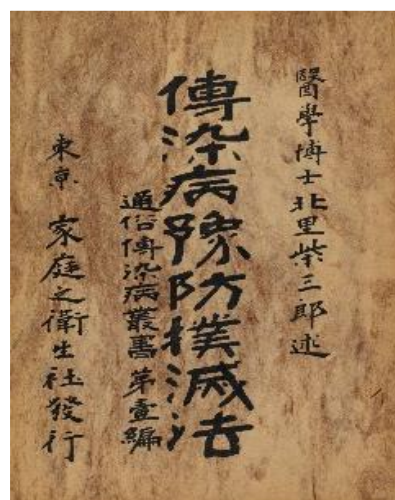 醫學博士北里柴三郎述
傳染病豫防撲滅法
通俗傳染病叢書第壹編
東京 家庭之衛生社發行